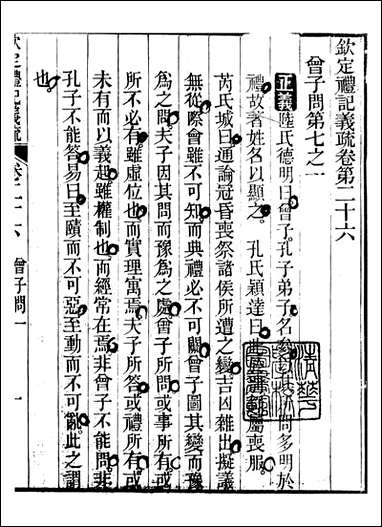 欽定禮記義疏卷第二十六
曾子問第七之一
正義陸氏德明曰曾子孔子弟子名參以其所問多明於
禮故著姓名以顯之 孔氏穎達曰 屬喪服
芮氏城曰通論冠昏喪祭諸侯所遭之變吉凶雜出擬議
無從際會雖不可知而典禮必不可闕曾子圖其變而豫
為之問夫子因其問而豫為之處曾子所問或事所有或
所不必有雖虛位也而實理寓焉夫子所答或禮所有或
未有而以義起雖權制也而經常在焉非曾子不能問非
孔子不能答易曰至賾而不可惡至動而不可亂此之謂
也
欽定禮記義疏 卷二十六 曾子問一 一